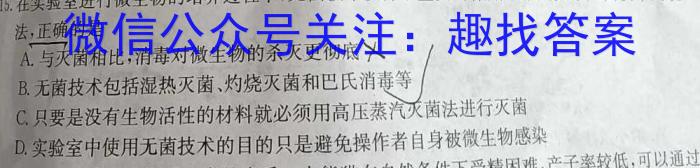 15.在实验室进行微生物的培养过程中
法,正确的
微信公众号关注：趣找答案
A.与灭菌相比,消毒对微生物的杀灭更彻底
B.无菌技术包括湿热灭菌、灼烧灭菌和巴氏消毒等
C.只要是没有生物活性的材料就必须用高压蒸汽灭菌法进行灭菌
D.实验室中使用无菌技术的目的只是避免操作者自身被微生物感染
自然条件下受精困难,产子率较低,可以通过